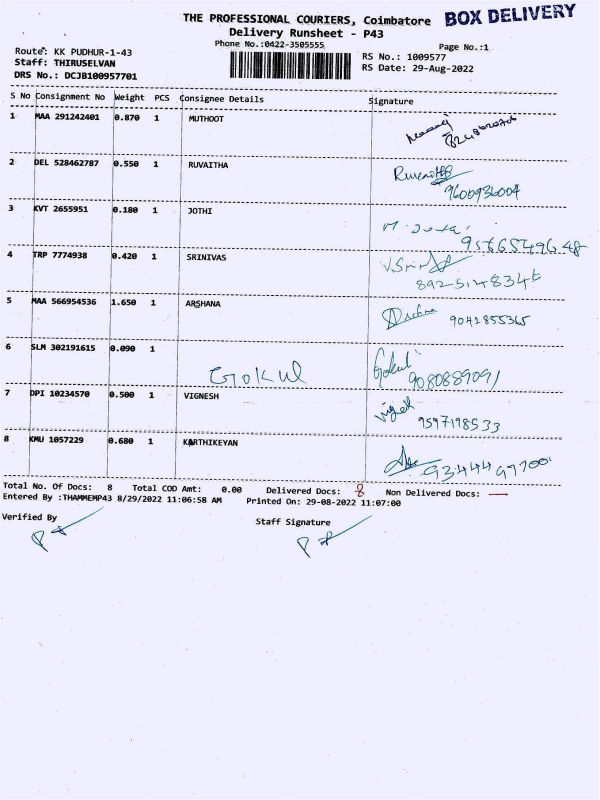 THE PROFESSIONAL COURIERS, Coimbatore BOX DELIVERY
Delivery Runsheet - P43
Phone No.:0422-3505555 Page No.:1
Route: KK PUDHUR-1-43 RS No.: 1009577
Staff: THIRUSELVAN RS Date: 29-Aug-2022
DRS No.: DCJB100957701
S No Consignment No Weight PCS Consignee Details Signature
1 MAA 291242401 0.870 1 MUTHOOT
2 DEL 528462787 0.550 1 RUVAITHA
9600936004
3 KVT 2655951 0.180 1 JOTHI
9566549648
4 TRP 7774938 0.420 1 SRINIVAS
8925128346
5 MAA 566954536 1.650 1 ARSHANA
9041855365
6 SLM 302191615 0.090 1 GOKUL Gokul
9080889091
7 DPI 10234570 0.500 1 VIGNESH
9597198533
8 KMU 1057229 0.680 1 KARTHIKEYAN
9344497700
Total No. Of Docs: 8 Total COD Amt: 0.00 Delivered Docs: 8 Non Delivered Docs: —
Entered By :THAMMEMP43 8/29/2022 11:06:58 AM Printed On: 29-08-2022 11:07:00
Verified By Staff Signature